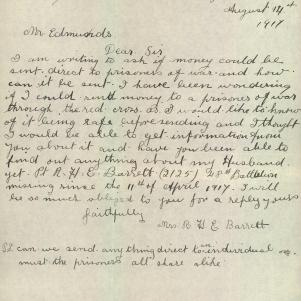 August 14th
1917
Mr Edmunds
Dear Sir
I am writing to ask if money could be
sent direct to prisoners of war and how
can it be sent. I have been wondering
if I could send money to a prisoner of war
through the red cross. as I would like to know
of it being safe before sending and I thought
I would be able to get information from
you about it and have you been able to
find out anything about my Husband
yet. Pt R. H. E. Barrett (2125) 48th Battalion
missing since the 11th of April 1917. I will
be so much obliged to you for a reply yours
faithfully
Mrs. R H E Barrett
can we send anything direct to an individual or
must the prisoners all share alike